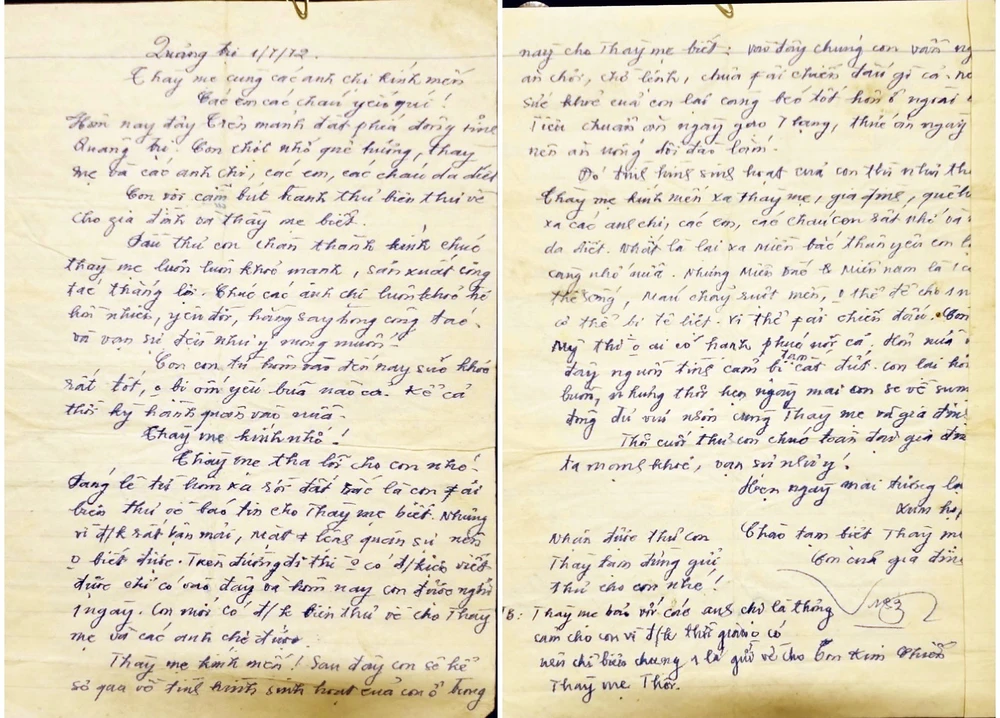 Quảng trị 1/7/72.
Thày mẹ cùng các anh chị kính mến
Các em các cháu yêu quí!
Hôm nay đây trên mảnh đất phía đông tỉnh
Quảng trị. Con chợt nhớ quê hương, thày
mẹ và các anh chị, các em, các cháu da diết
Con vội cầm bút thành thư biên thư về
cho gia đình và thày mẹ biết.
Đầu thư con chân thành kính chúc
thày mẹ luôn luôn khoẻ mạnh, sản xuất công
tác thắng lợi. Chúc các anh chị luôn khoẻ
hồn nhiên, yêu đời, hăng say trong công tác.
và vạn sự đều như ý mong muốn.
Còn con từ hôm vào đến nay sức khoẻ
rất tốt, o bị ốm yếu bữa nào cả. Kể cả
thời kỳ hành quân vào nữa.
Thày mẹ kính nhớ!
Thày mẹ tha lỗi cho con nhé.
Đáng lẽ từ hôm xa rời đất Bắc là con fải
biên thư về báo tin cho Thày mẹ biết. Nhưng
vì đ/k rất bận mải, mặt # quân sự nên
o biết được. Trên đường đi thì o có đ/kiện viết
được chỉ có vào đây và hôm nay con được nghỉ
1 ngày. Con mới có đ/k biên thư về cho Thày
mẹ và các anh chị được
Thày mẹ kính mến! Sau đây con sẽ kể
sơ qua về tình hình sinh hoạt của con ở trong
này cho Thày mẹ biết: vào đây chúng con vẫn
ăn chơi, chờ lệnh, chưa fải chiến đấu gì cả.
sức khoẻ của con lại càng béo tốt hơn ở ngoài
Tiêu chuẩn ăn ngày thức ăn ngày
nên ăn uống dồi dào lắm.
Đó tình hình sinh hoạt của con thì như
Thày mẹ kính mến xa thày mẹ, gia đình,
xa các anh chị, các em, các cháu con rất nhớ và
da diết. Nhất là lại xa miền bắc thân yêu con
càng nhớ nữa. Nhưng Miền Bắc & Miền nam là
thể sống, máu chảy ruột mền, o thể để cho 1
cơ thể bị tê liệt. Vì thế fải chiến đấu. Còn
Mỹ thì o ai có hạnh phúc nổi cả. Hơn nữa
đây người tình cảm bị tạm cắt đứt. con lại
buồn, nhưng thôi hẹn ngày mai con sẽ về
đông đủ vui cùng Thày mẹ và gia đình
Thôi cuối thư con chúc toàn đại gia
ta mạnh khoẻ, vạn sự như ý.
Hẹn ngày mai tương
xum họp
Nhận được thư con Chào tạm biệt Thày mẹ
Thày tạm đừng gửi Con của gia đình
thư cho con nhé!
B: Thày mẹ bảo với các anh chị là thông
cảm cho con vì đ/k thời gian o có
nên chỉ biên chung 1 lá gửi về cho Con Kim
Thày mẹ Thôi.